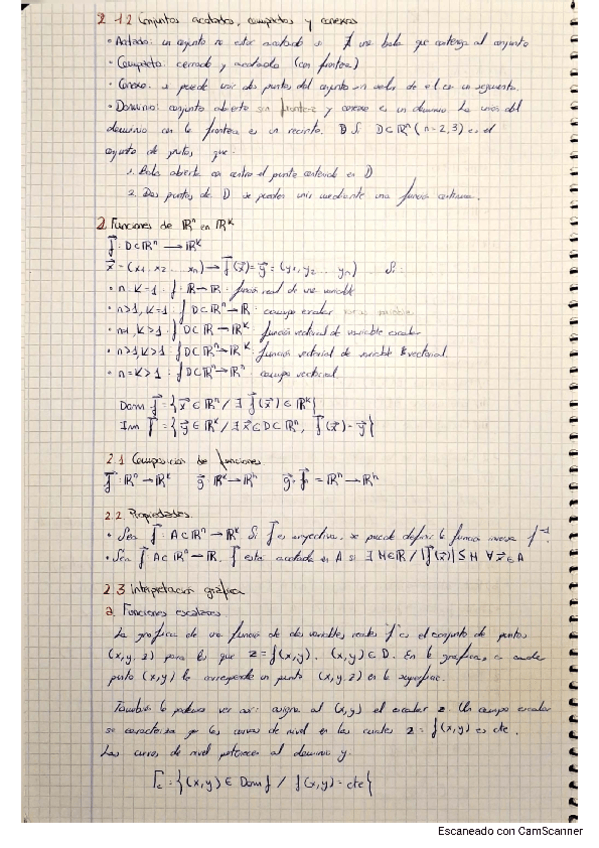 2.1.2 Conjuntos acotados, compactos y conexos
• Acotado: un conjunto no está acotado si ∄ una bola que contenga al conjunto
• Compacto: cerrado y acotado (con frontera)
• Conexo: si puede unir dos puntos del conjunto sin salir de él con un segmento.
• Dominio: conjunto abierto sin frontera y conexo es un dominio. La unión del
dominio con la frontera es un recinto. D Si D⊂ℝⁿ (n=2,3) es el
conjunto de puntos, que:
1. Bola abierta con centro el punto contenida en D
2. Dos puntos de D se pueden unir mediante una función continua.
2. Funciones de ℝⁿ en ℝᵏ
f⃗: D⊂ℝⁿ → ℝᵏ
x⃗ = (x₁, x₂ ... xₙ) → f⃗(x⃗) = y⃗ = (y₁, y₂ ... yₙ) Si:
• n=K=1: f: ℝ→ℝ: función real de una variable
• n>1, K=1: f D⊂ℝⁿ→ℝ: campo escalar
• n=1, K>1: f D⊂ℝ→ℝᵏ: función vectorial de variable escalar
• n>1, K>1: f D⊂ℝⁿ→ℝᵏ: función vectorial de variable vectorial.
• n=K>1: f D⊂ℝⁿ→ℝⁿ campo vectorial
Dom f⃗ = {x⃗ ∈ ℝⁿ / ∃ f⃗(x⃗) ∈ ℝᵏ}
Im f⃗ = {y⃗ ∈ ℝᵏ / ∃ x⃗ ∈ D⊂ℝⁿ, f⃗(x⃗) = y⃗}
2.1 Composición de funciones
f⃗: ℝⁿ→ℝᵏ g⃗: ℝᵏ→ℝʰ g⃗·f⃗ = ℝⁿ→ℝʰ
2.2. Propiedades.
• Sea f⃗: A⊂ℝⁿ → ℝᵏ Si f⃗ es inyectiva, se puede definir la función inversa f⁻¹.
• Sea f⃗ A⊂ℝⁿ→ℝ. f⃗ está acotada en A si ∃ M∈ℝ / |f⃗(x⃗)| ≤ M ∀x⃗∈A
2.3 Interpretación gráfica
a. Funciones escalares.
La gráfica de una función de dos variables reales "f" es el conjunto de puntos
(x,y,z) para los que z=f(x,y). (x,y)∈D. En la gráfica, a cada
punto (x,y) le corresponde un punto (x,y,z) en la superficie.
También lo podemos ver así: asigna al (x,y) el escalar z. Un campo escalar
se caracteriza por las curvas de nivel en las cuales z=f(x,y) es cte.
Las curvas de nivel pertenecen al dominio y:
Γc = {(x,y) ∈ Dom f / f(x,y) = cte}
Escaneado con CamScanner